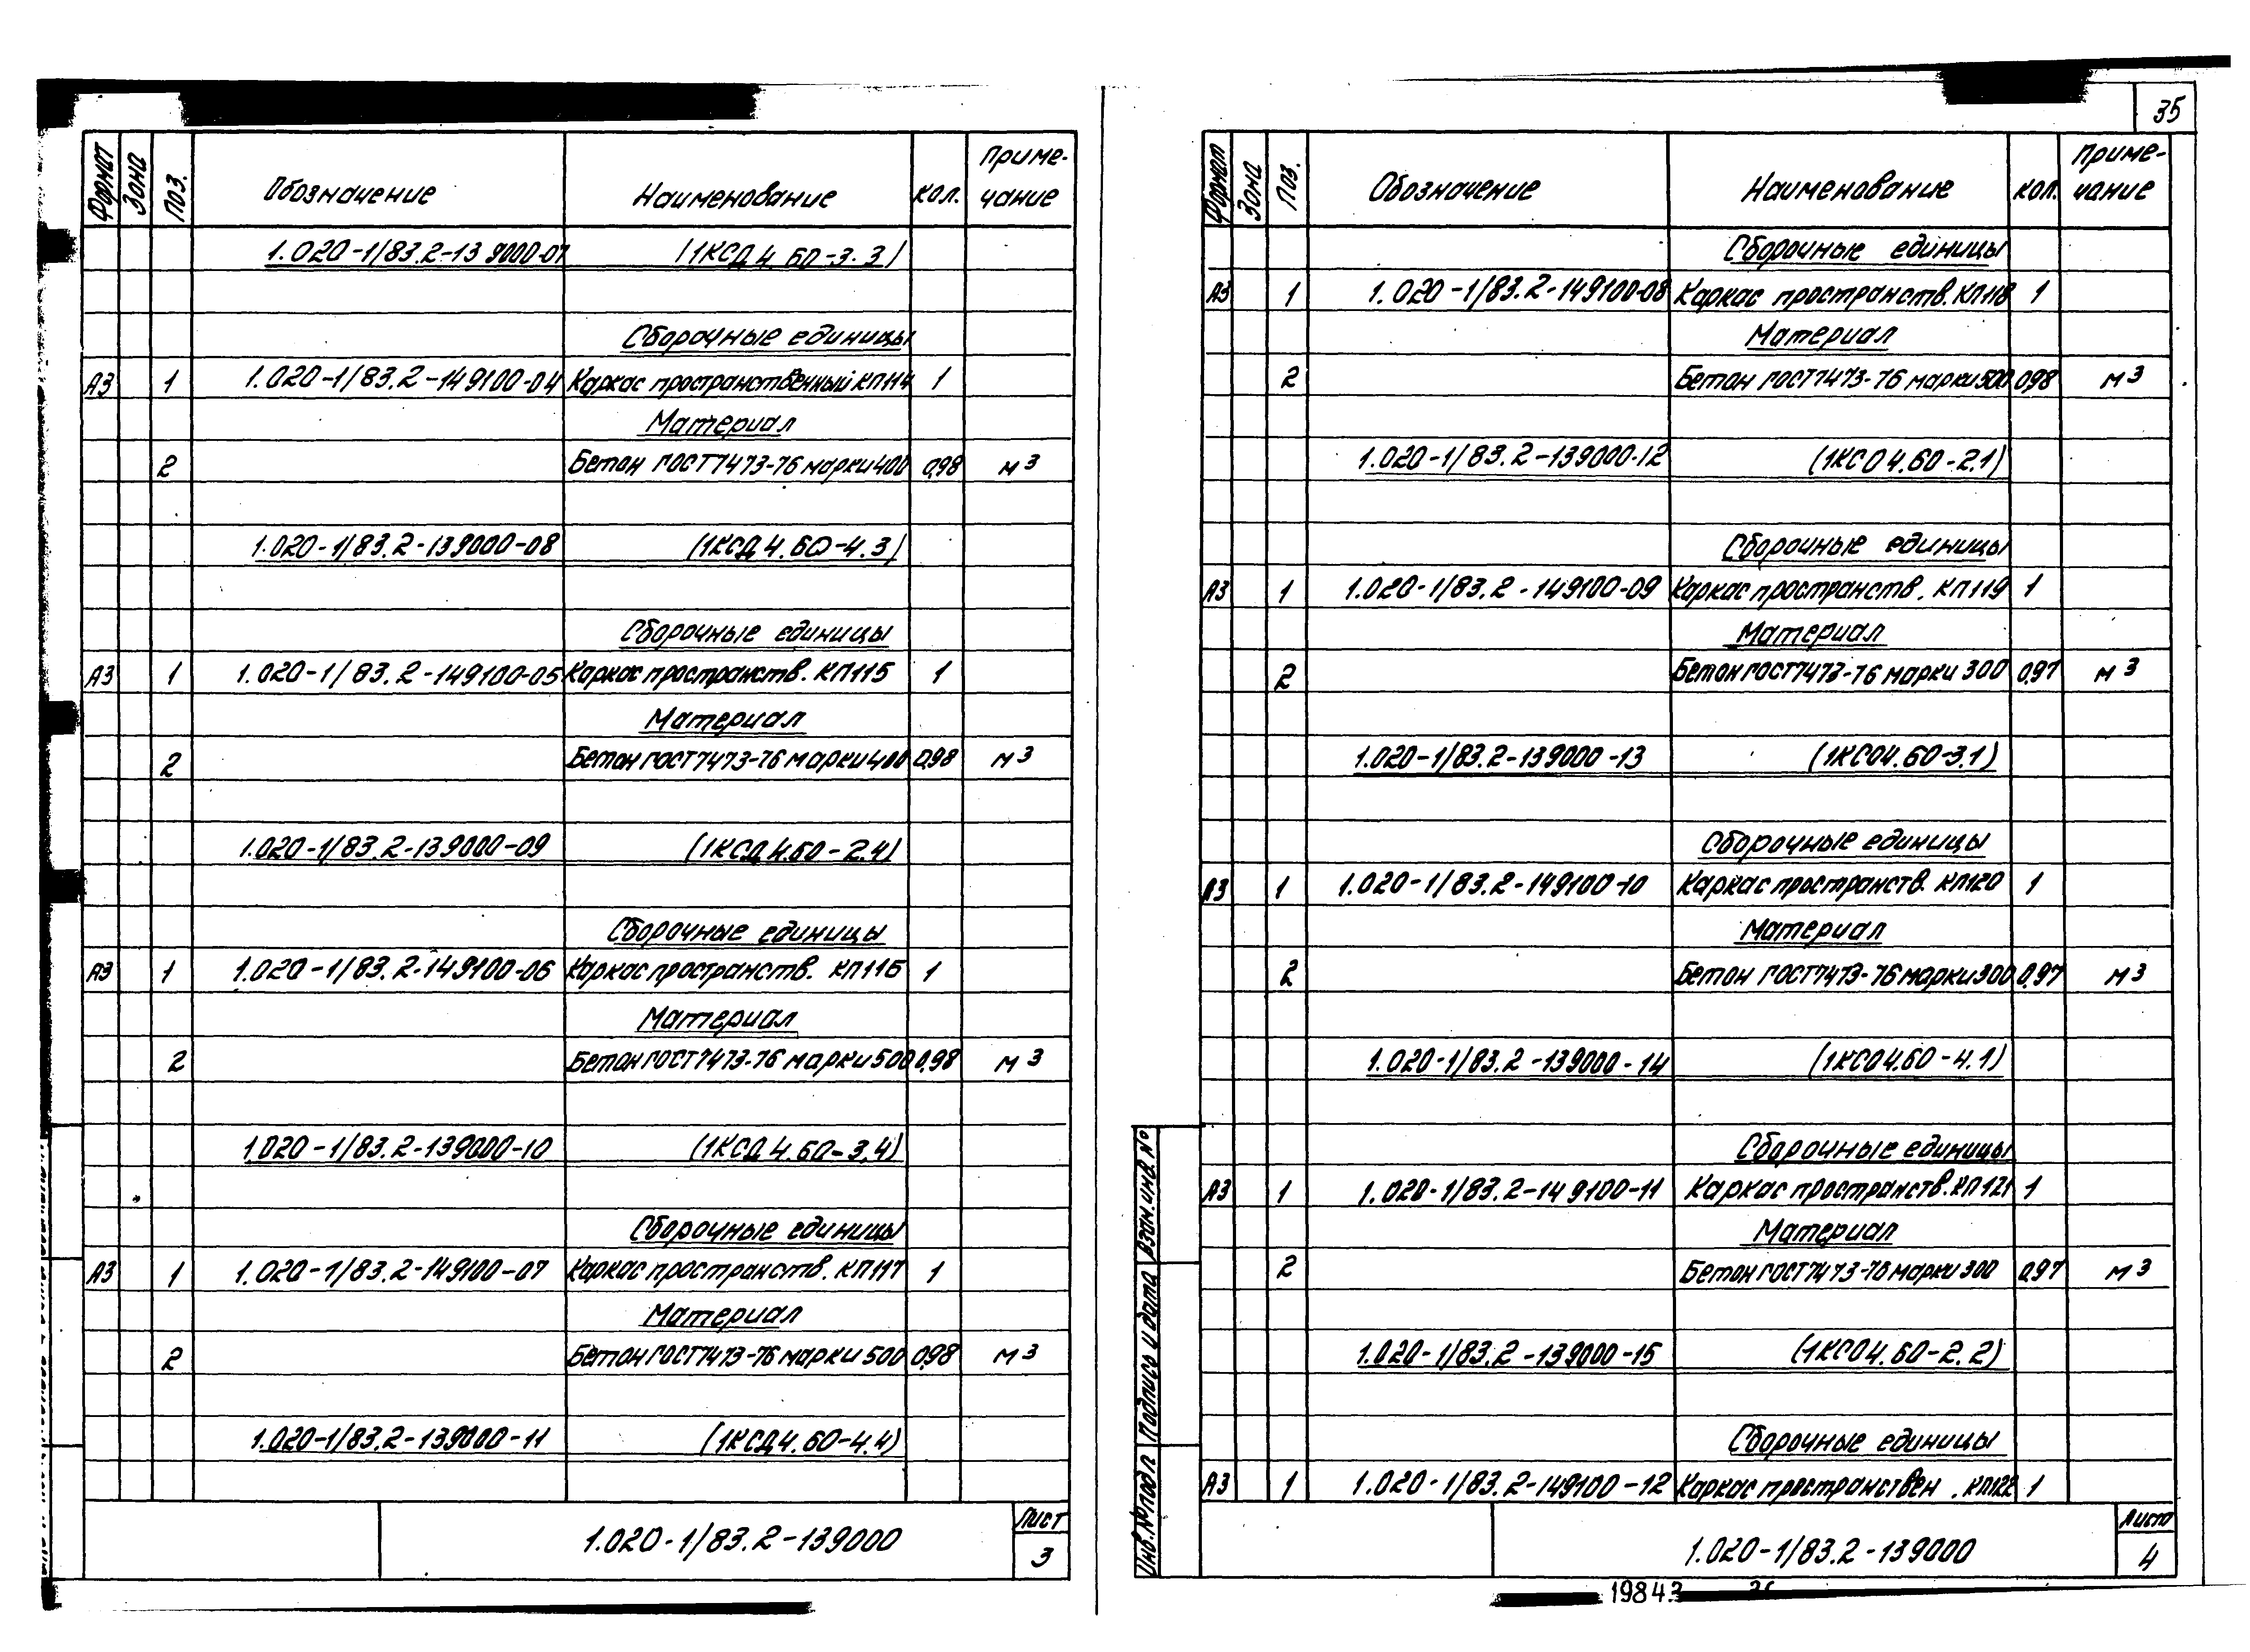 Формат Зона Поз. Обозначение Наименование Кол. Приме-чание
1.020-1/83.2-139000-07 (1КСД4.60-3.3)
Сборочные единицы
А3 1 1.020-1/83.2-149100-04 Каркас пространственный КП114 1
Материал
2 Бетон ГОСТ7473-76 марки 400 0,98 м3
1.020-1/83.2-139000-08 (1КСД4.60-4.3)
Сборочные единицы
А3 1 1.020-1/83.2-149100-05 Каркас пространств. КП115 1
Материал
2 Бетон ГОСТ7473-76 марки 400 0,98 м3
1.020-1/83.2-139000-09 (1КСД4.60-2.4)
Сборочные единицы
А3 1 1.020-1/83.2-149100-06 Каркас пространств. КП116 1
Материал
2 Бетон ГОСТ7473-76 марки 500 0,98 м3
1.020-1/83.2-139000-10 (1КСД4.60-3.4)
Сборочные единицы
А3 1 1.020-1/83.2-149100-07 Каркас пространств. КП117 1
Материал
2 Бетон ГОСТ7473-76 марки 500 0,98 м3
1.020-1/83.2-139000-11 (1КСД4.60-4.4)
1.020-1/83.2-139000
Лист
3
35
Формат Зона Поз. Обозначение Наименование Кол. Приме-чание
Сборочные единицы
А3 1 1.020-1/83.2-149100-08 Каркас пространств. КП118 1
Материал
2 Бетон ГОСТ7473-76 марки 500 0,98 м3
1.020-1/83.2-139000-12 (1КСО4.60-2.1)
Сборочные единицы
А3 1 1.020-1/83.2-149100-09 Каркас пространств. КП119 1
Материал
2 Бетон ГОСТ7473-76 марки 300 0,97 м3
1.020-1/83.2-139000-13 (1КСО4.60-3.1)
Сборочные единицы
А3 1 1.020-1/83.2-149100-10 Каркас пространств. КП120 1
Материал
2 Бетон ГОСТ7473-76 марки 300 0,97 м3
1.020-1/83.2-139000-14 (1КСО4.60-4.1)
Сборочные единицы
А3 1 1.020-1/83.2-149100-11 Каркас пространств. КП121 1
Материал
2 Бетон ГОСТ7473-76 марки 300 0,97 м3
1.020-1/83.2-139000-15 (1КСО4.60-2.2)
Сборочные единицы
А3 1 1.020-1/83.2-149100-12 Каркас пространствен. КП122 1
Инв.№ подл Подпись и дата Взам.инв.№
1.020-1/83.2-139000
Листо
4
19843